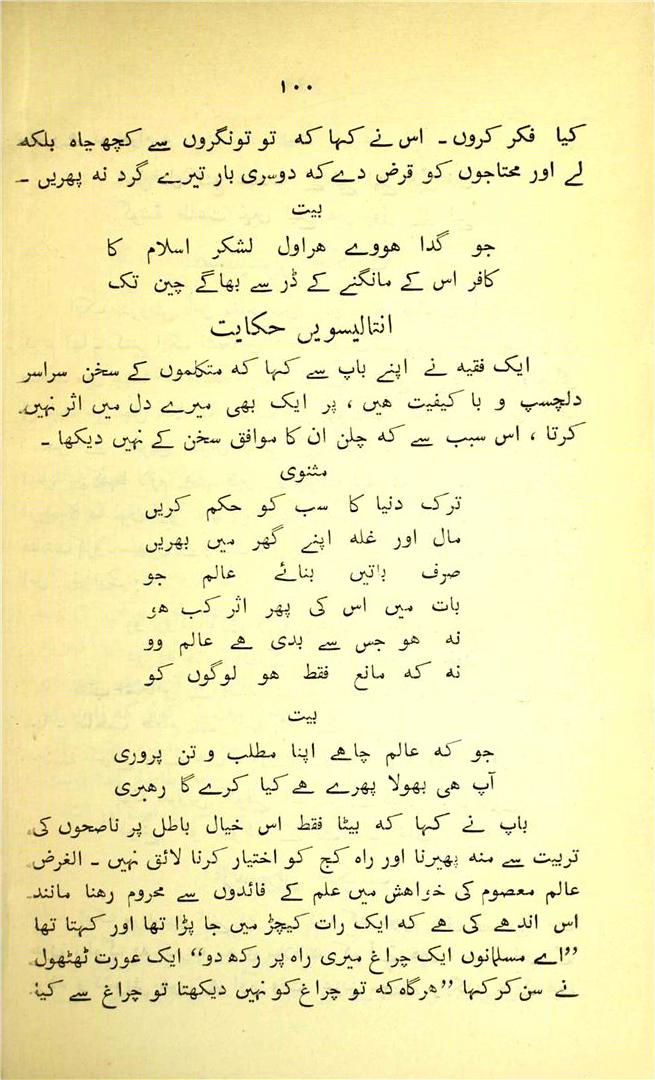 ۱۰۰
کیا فکر کروں ـ اس نے کہا کہ تو تونگروں سے کچھ چاہ بلکہ
لے اور محتاجوں کو قرض دے کہ دوسری بار تیرے گرد نہ پھریں ـ
بیت
جو گدا ھووے ھراول لشکر اسلام کا
کافر اس کے مانگنے کے ڈر سے بھاگے چین تک
انتالیسویں حکایت
ایک فقیہ نے اپنے باپ سے کہا کہ متکلموں کے سخن سراسر
دلچسپ و با کیفیت ھیں ، پر ایک بھی میرے دل میں اثر نہیں
کرتا ، اس سبب سے کہ چلن ان کا موافق سخن کے نہیں دیکھا ـ
مثنوی
ترک دنیا کا سب کو حکم کریں
مال اور غلہ اپنے گھر میں بھریں
صرف باتیں بنائے عالم جو
بات میں اس کی پھر اثر کب ھو
نہ ھو جس سے بدی ھے عالم وو
نہ کہ مانع فقط ھو لوگوں کو
بیت
جو کہ عالم چاھے اپنا مطلب و تن پروری
آپ ھی بھولا پھرے ھے کیا کرے گا رھبری
باپ نے کہا کہ بیٹا فقط اس خیال باطل پر ناصحوں کی
تربیت سے منہ پھیرنا اور راہ کج کو اختیار کرنا لائق نہیں ـ الغرض
عالم معصوم کی خواھش میں علم کے فائدوں سے محروم رھنا مانند
اس اندھے کی ھے کہ ایک رات کیچڑ میں جا پڑا تھا اور کہتا تھا
”اے مسلمانوں ایک چراغ میری راہ پر رکھ دو“ ایک عورت ٹھٹھول
نے سن کر کہا ”ھر گاہ کہ تو چراغ کو نہیں دیکھتا تو چراغ سے کیا